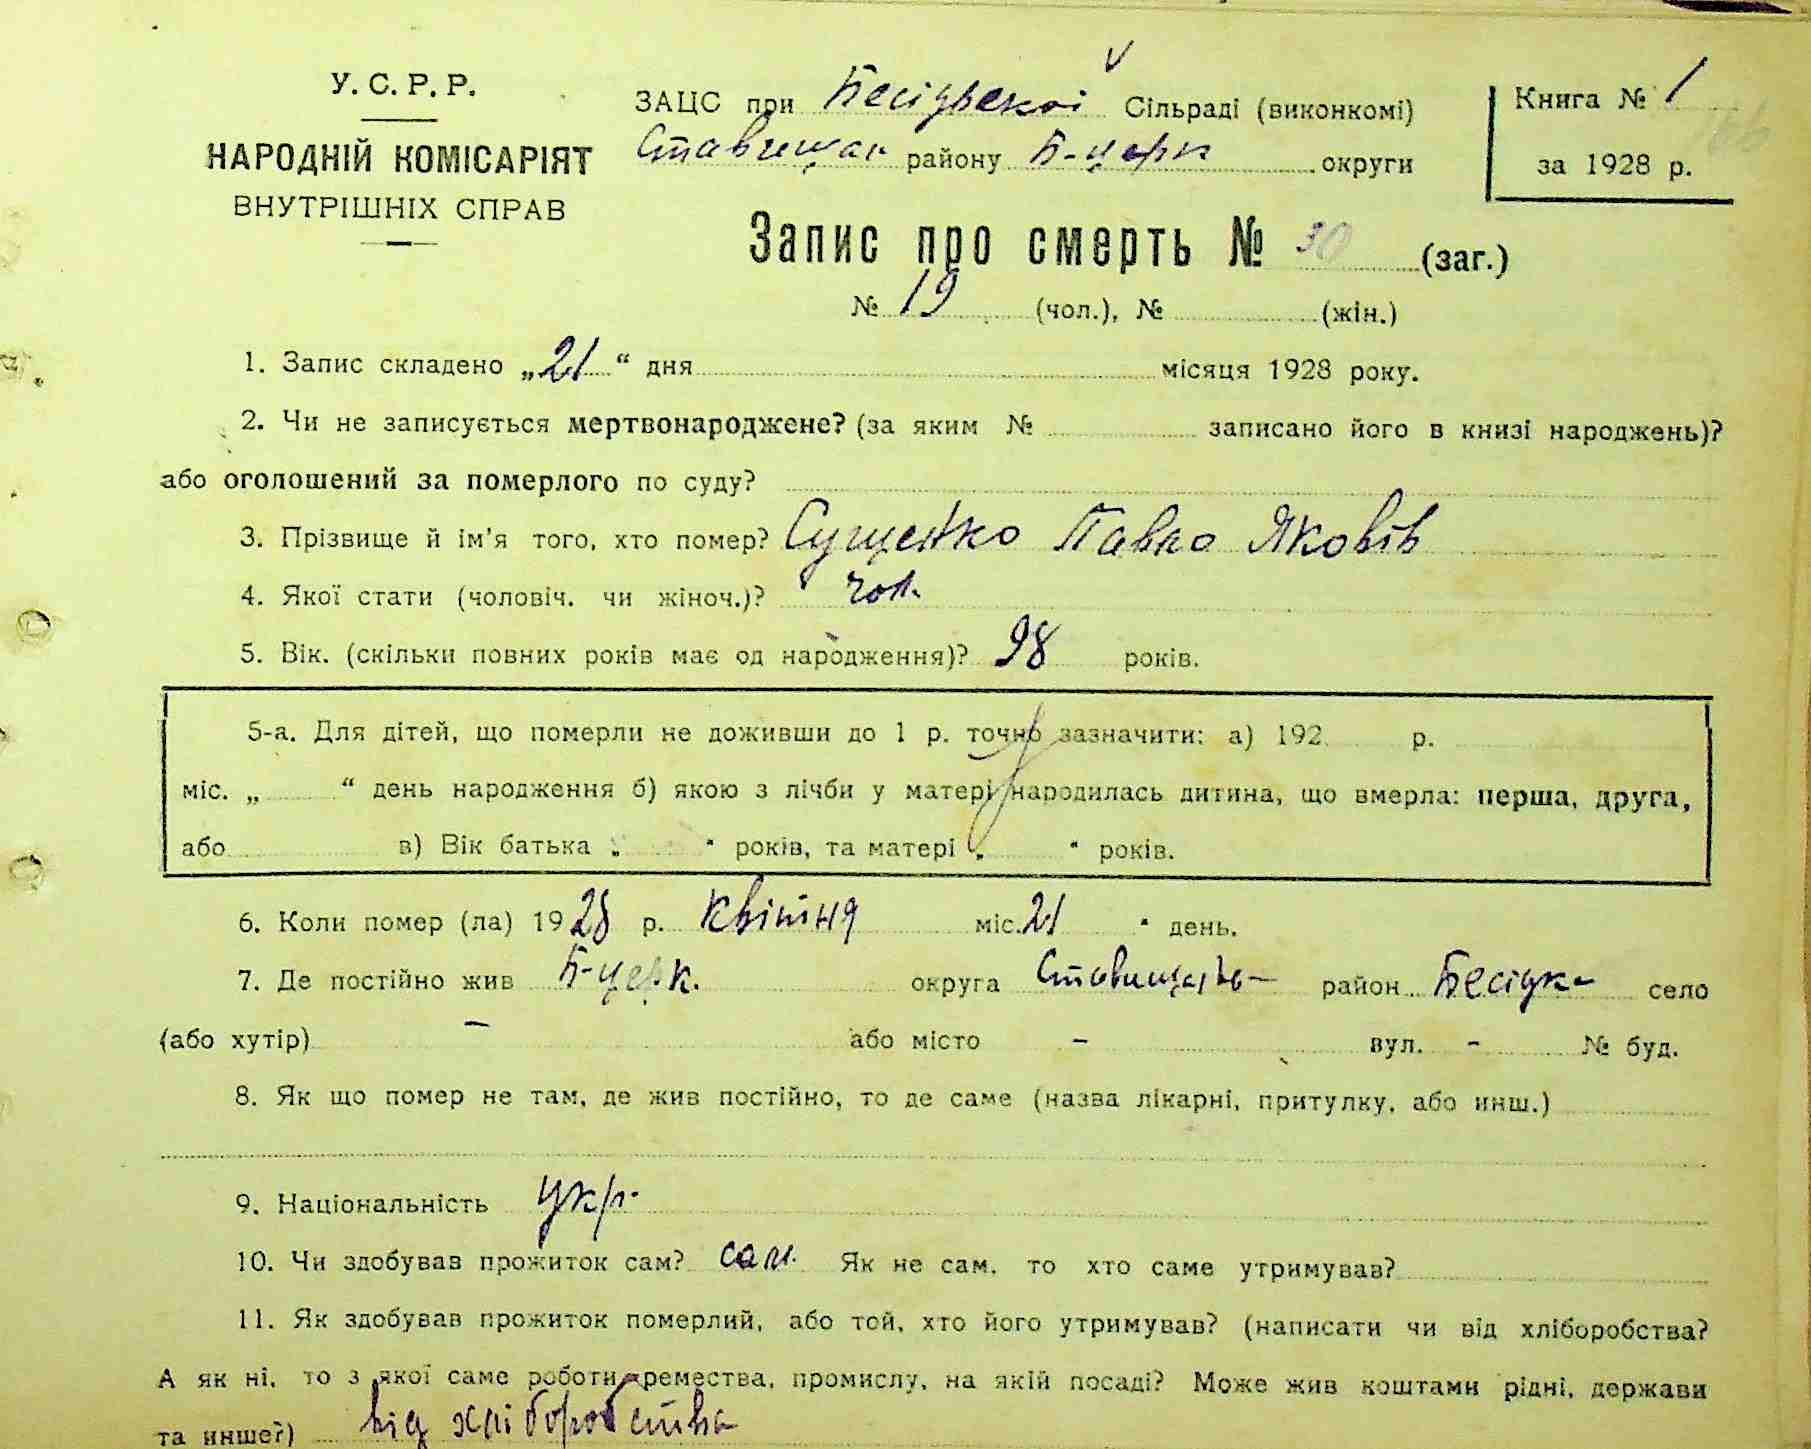 У.С.Р.Р.
НАРОДНІЙ КОМІСАРІЯТ
ВНУТРІШНІХ СПРАВ
ЗАЦС при Бесідській Сільраді (виконкомі)
Ставищан району Б-церк округи
Книга № 1
за 1928 р.
Запис про смерть № 30 (заг.)
№ 19 (чол.), № (жін.)
1. Запис складено „21“ дня місяця 1928 року.
2. Чи не записується мертвонароджене? (за яким № записано його в книзі народжень)?
або оголошений за померлого по суду?
3. Прізвище й ім'я того, хто помер? Сущенко Павло Яковів
4. Якої стати (чоловіч. чи жіноч.)? чол.
5. Вік. (скільки повних років має од народження)? 98 років.
5-а. Для дітей, що померли не доживши до 1 р. точно зазначити: а) 192 р.
міс. „ “ день народження б) якою з лічби у матері народилась дитина, що вмерла: перша, друга,
або в) Вік батька „ “ років, та матері „ “ років.
6. Коли помер (ла) 1928 р. квітня міс. 21 “ день.
7. Де постійно жив Б-церк. округа район Бесідка село
(або хутір) – або місто – вул. - № буд.
8. Як що помер не там, де жив постійно, то де саме (назва лікарні, притулку, або инш.)
9. Національність укр.
10. Чи здобував прожиток сам? сам. Як не сам, то хто саме утримував?
11. Як здобував прожиток померлий, або той, хто його утримував? (написати чи від хліборобства?
А як ні, то з якої саме роботи, ремества, промислу, на якій посаді? Може жив коштами рідні, держави
та инше?) від хліборобства